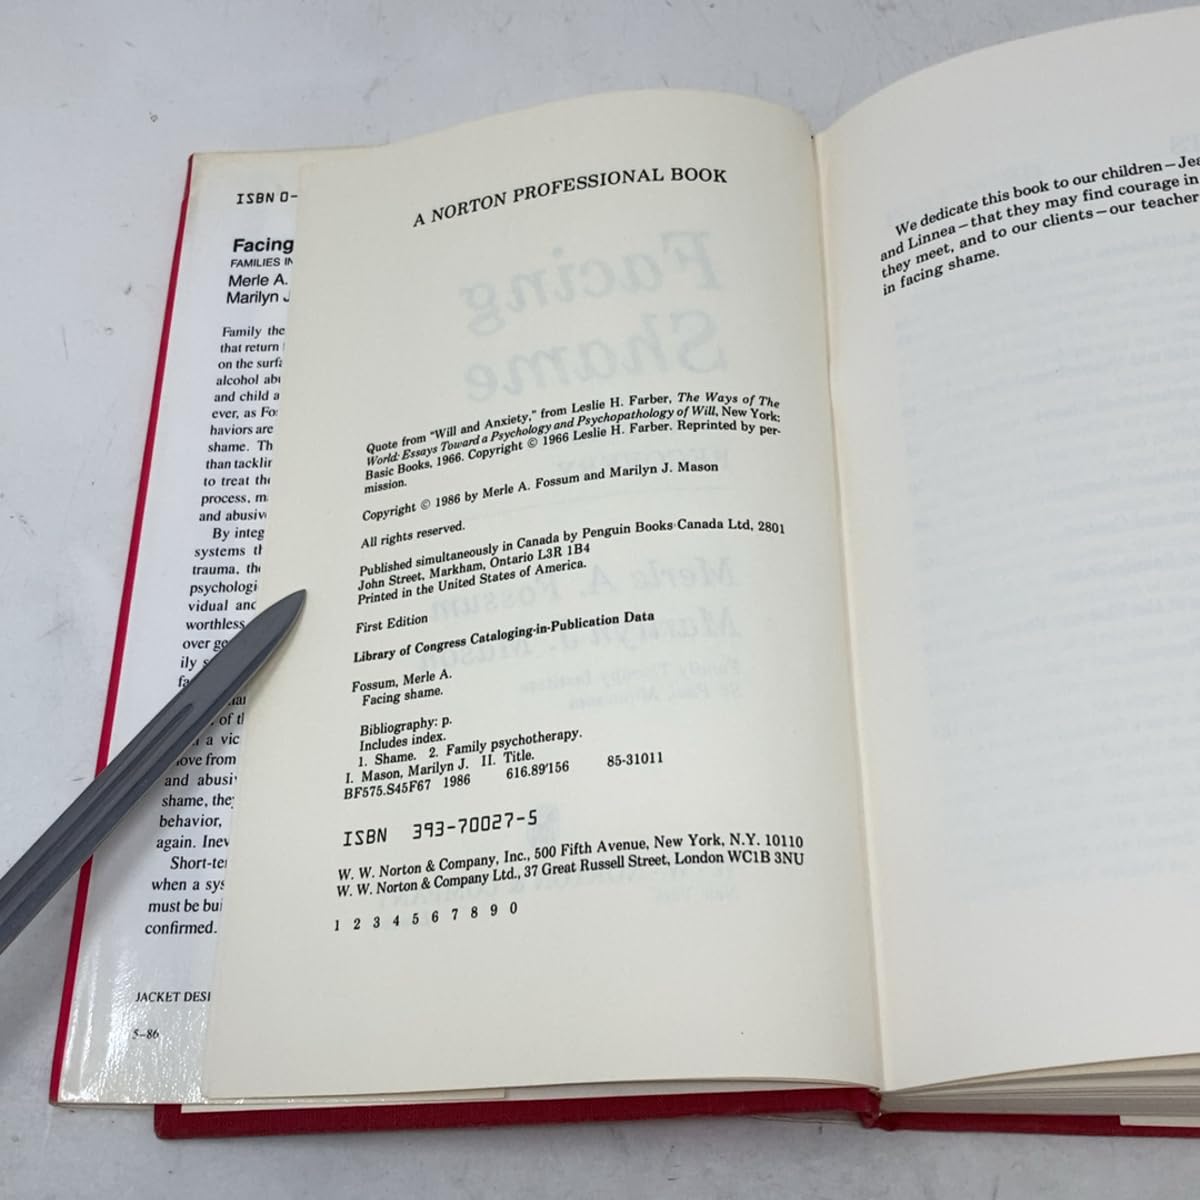 ISBN 0-
Facing
FAMILIES IN
Merle A.
Marilyn J
Family the
that return
on the surfa
alcohol abu
and child a
ever, as Fo
haviors are
shame. Th
than tacklin
to treat the
process, m
and abusiv
By integ
systems th
trauma, the
psychologi
vidual and
worthless
over
ily
of th
a vic
move from
and abusi
shame, they
behavior,
again. Inev
Short-te
when a sys
must be bui
confirmed.
JACKET DESI
5-86
A NORTON PROFESSIONAL BOOK
Facing
Shame
Quote from "Will and Anxiety," from Leslie H. Farber, The Ways of The
World: Essays Toward a Psychology and Psychopathology of Will, New York:
Basic Books, 1966. Copyright © 1966 Leslie H. Farber. Reprinted by per-
mission.
Copyright © 1986 by Merle A. Fossum and Marilyn J. Mason
All rights reserved.
Published simultaneously in Canada by Penguin Books Canada Ltd, 2801
John Street, Markham, Ontario L3R 1B4
Printed in the United States of America.
Merle A. Fossum
Marilyn J. Mason
First Edition
Library of Congress Cataloging-in-Publication Data
Fossum, Merle A.
Facing shame.
Bibliography: p.
Includes index.
1. Shame. 2. Family psychotherapy.
I. Mason, Marilyn J. II. Title.
BF575.S45F67 1986 616.89'156 85-31011
ISBN 393-70027-5
W. W. Norton & Company, Inc., 500 Fifth Avenue, New York, N.Y. 10110
W. W. Norton & Company Ltd., 37 Great Russell Street, London WC1B 3NU
1 2 3 4 5 6 7 8 9 0
We dedicate this book to our children—Jea
and Linnea—that they may find courage in
they meet, and to our clients—our teacher
in facing shame.